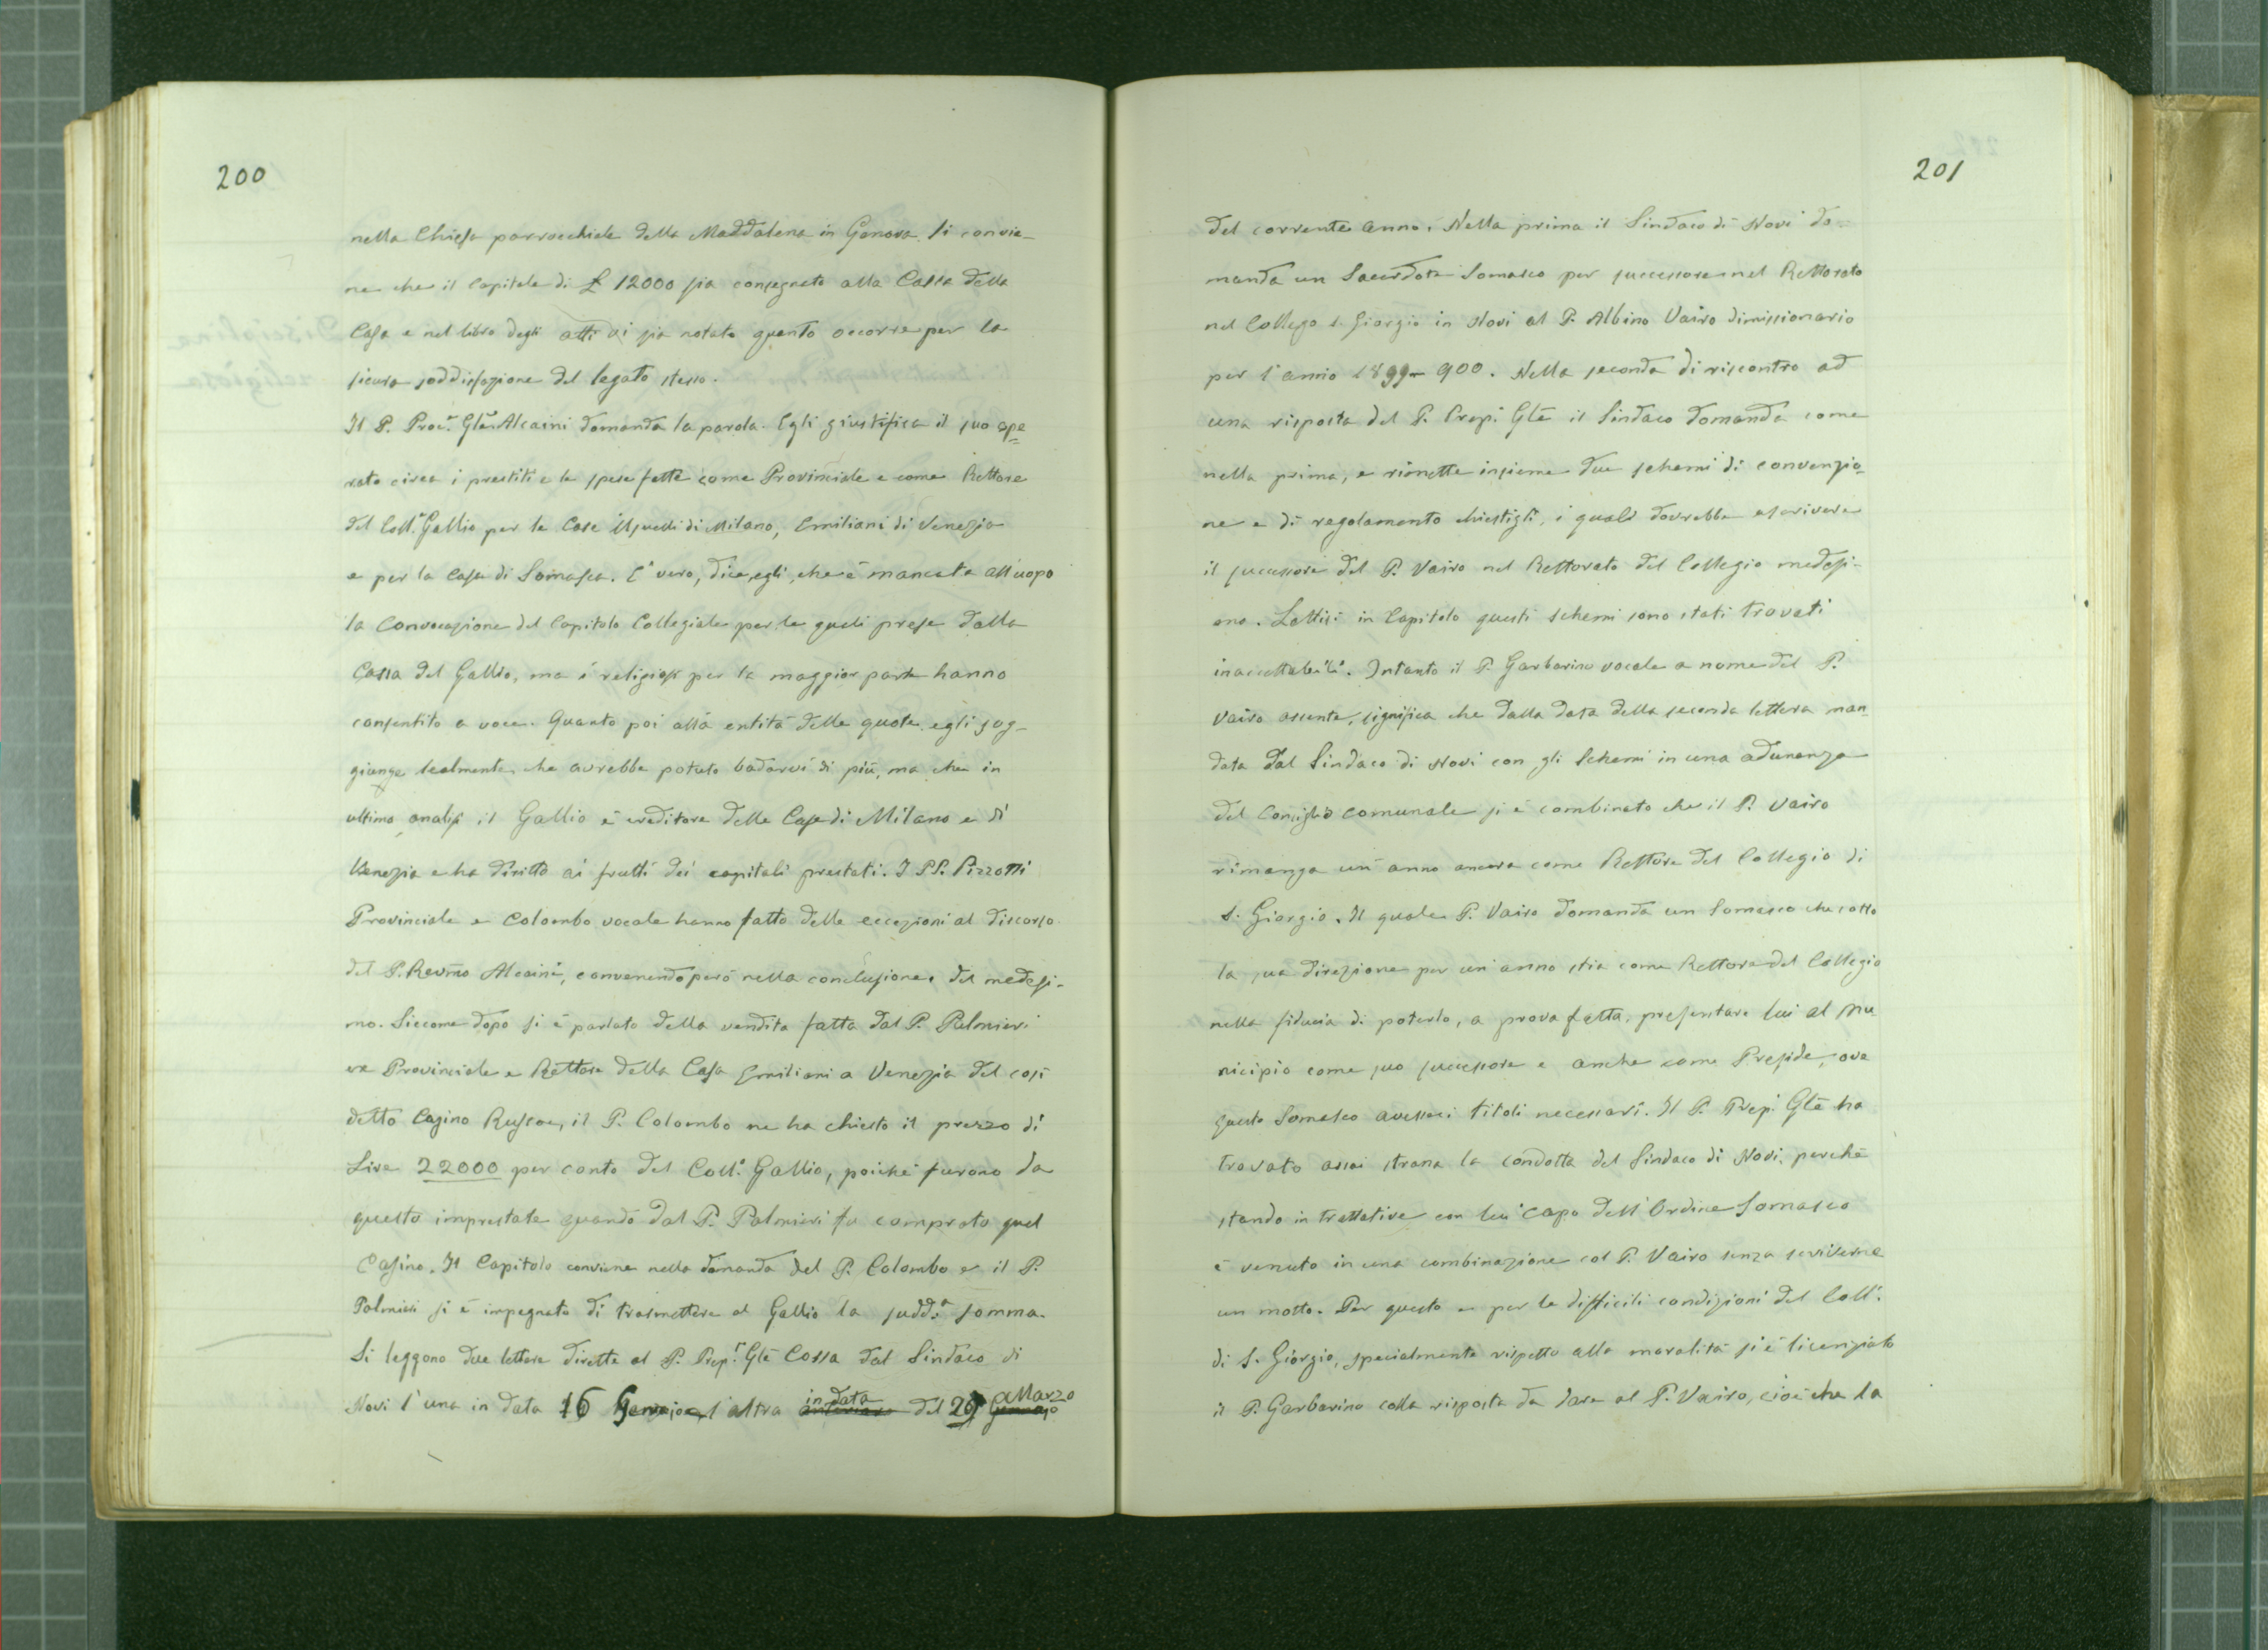 200
nella Chiesa parrocchiale della Maddalena in Genova. Si convie-
ne che il Capitale di £ 12000 sia consegnato alla Cassa della
Casa e nel libro degli atti vi sia notato quanto occorre per la
sicura soddisfazione del legato stesso.
Il P. Proc.r Glē Alcaini domanda la parola. Egli giustifica il suo ope
rato circa i prestiti e le spese fatte come Provinciale e come Rettore
del Coll.o Gallio per le Case Usuelli di Milano, Emiliani di Venezia
e per la Casa di Somasca. E' vero, dice, egli, che è mancata all'uopo
la Convocazione del Capitolo Collegiale per le quali prese dalla
Cassa del Gallio, ma i religiosi per la maggior parte hanno
consentito a voce. Quanto poi alla entità delle quote egli sog-
giunge lealmente che avrebbe potuto badarvi di più, ma che in
ultima analisi il Gallio è creditore delle Case di Milano e di
Venezia e ha diritto ai frutti dei capitali prestati. I PP. Pizzotti
Provinciale e Colombo vocale hanno fatto delle eccezioni al discorso
del P. Reviño Alcaini, convenendo però nella conclusione del medesi-
mo. Siccome dopo si è parlato della vendita fatta dal P. Palmieri
ex Provinciale e Rettore della Casa Emiliani a Venezia del così
detto Casino Ruscoe, il P. Colombo ne ha chiesto il prezzo di
Lire 22000 per conto del Coll.o Gallio, poichè furono da
questo imprestate quando dal P. Palmieri fu comprato quel
Casino. Il Capitolo conviene nella domanda del P. Colombo e il P.
Palmieri si è impegnato di trasmettere al Gallio la sudd.a somma.
Si leggono due lettere dirette al P. Prep.r Glē Cossa dal Sindaco di
Novi l'una in data 16 Gennajo e l'altra anteriore in data del 29 Gennajo Marzo
201
del corrente anno. Nella prima il Sindaco di Novi do-
manda un Sacerdote Somasco per successore nel Rettorato
nel Collegio S. Giorgio in Novi al P. Albino Vairo dimissionario
per l'anno 1899-900. Nella seconda di riscontro ad
una risposta del P. Prep. Glē il Sindaco domanda come
nella prima, e rimette insieme due schemi di convenzio-
ne e di regolamento chiestigli, i quali dovrebbe ascrivere
il successore del P. Vairo nel Rettorato del Collegio medesi-
mo. Lettisi in Capitolo questi schemi sono stati trovati
inaccettabili. Intanto il P. Garbarino vocale a nome del P.
Vairo assente, significa che dalla data della seconda lettera man
data dal Sindaco di Novi con gli Schemi in una adunanza
del Consiglio comunale si è combinato che il P. Vairo
rimanga un anno ancora come Rettore del Collegio di
S. Giorgio. Il quale P. Vairo domanda un Somasco che sotto
la sua direzione per un'anno stia come Rettore del Collegio
nella fiducia di poterlo, a prova fatta, presentare lui al Mu
nicipio come suo successore e anche come Preside, ove
questo Somasco avesseci titoli necessari. Il P. Prep. Glē ha
trovato assai strana la condotta del Sindaco di Novi, perchè
stando in trattative con lui Capo dell'Ordine Somasco
è venuto in una combinazione col P. Vairo senza scriverne
un motto. Per questo e per le difficili condizioni del Coll.
di S. Giorgio, specialmente rispetto alla moralità si è licenziato
il P. Garbarino colla risposta da dare al P. Vairo, cioè che la